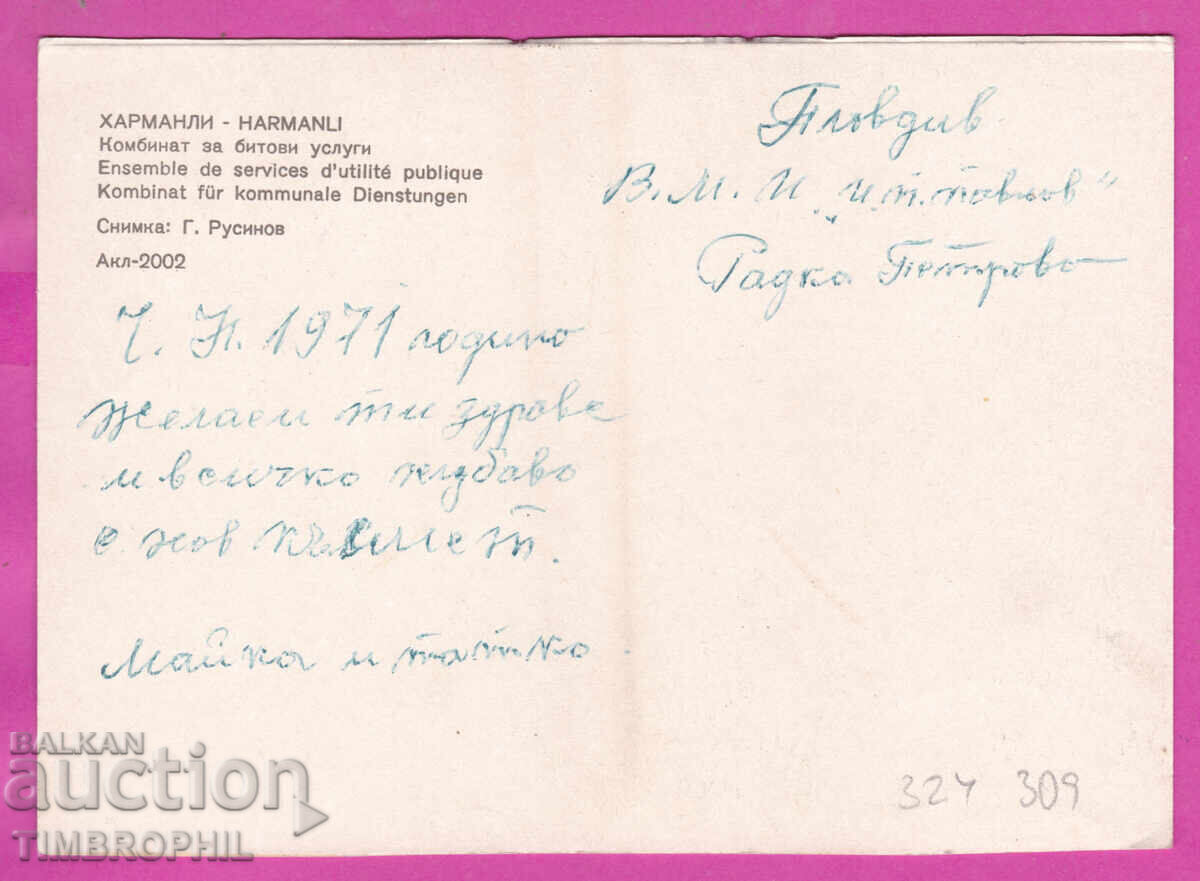 ХАРМАНЛИ - HARMANLI
Комбинат за битови услуги
Ensemble de services d'utilité publique
Kombinat für kommunale Dienstungen
Снимка: Г. Русинов
Акл-2002
Пловдив
В.М.И. „И.П. Павлов"
Радка Петрова
Ч. Н. 1971 година
желаем ти здраве
и всичко хубаво
с нов късмет.
Майка и татко.
324 309
BALKAN
auction
TIMBROPHIL